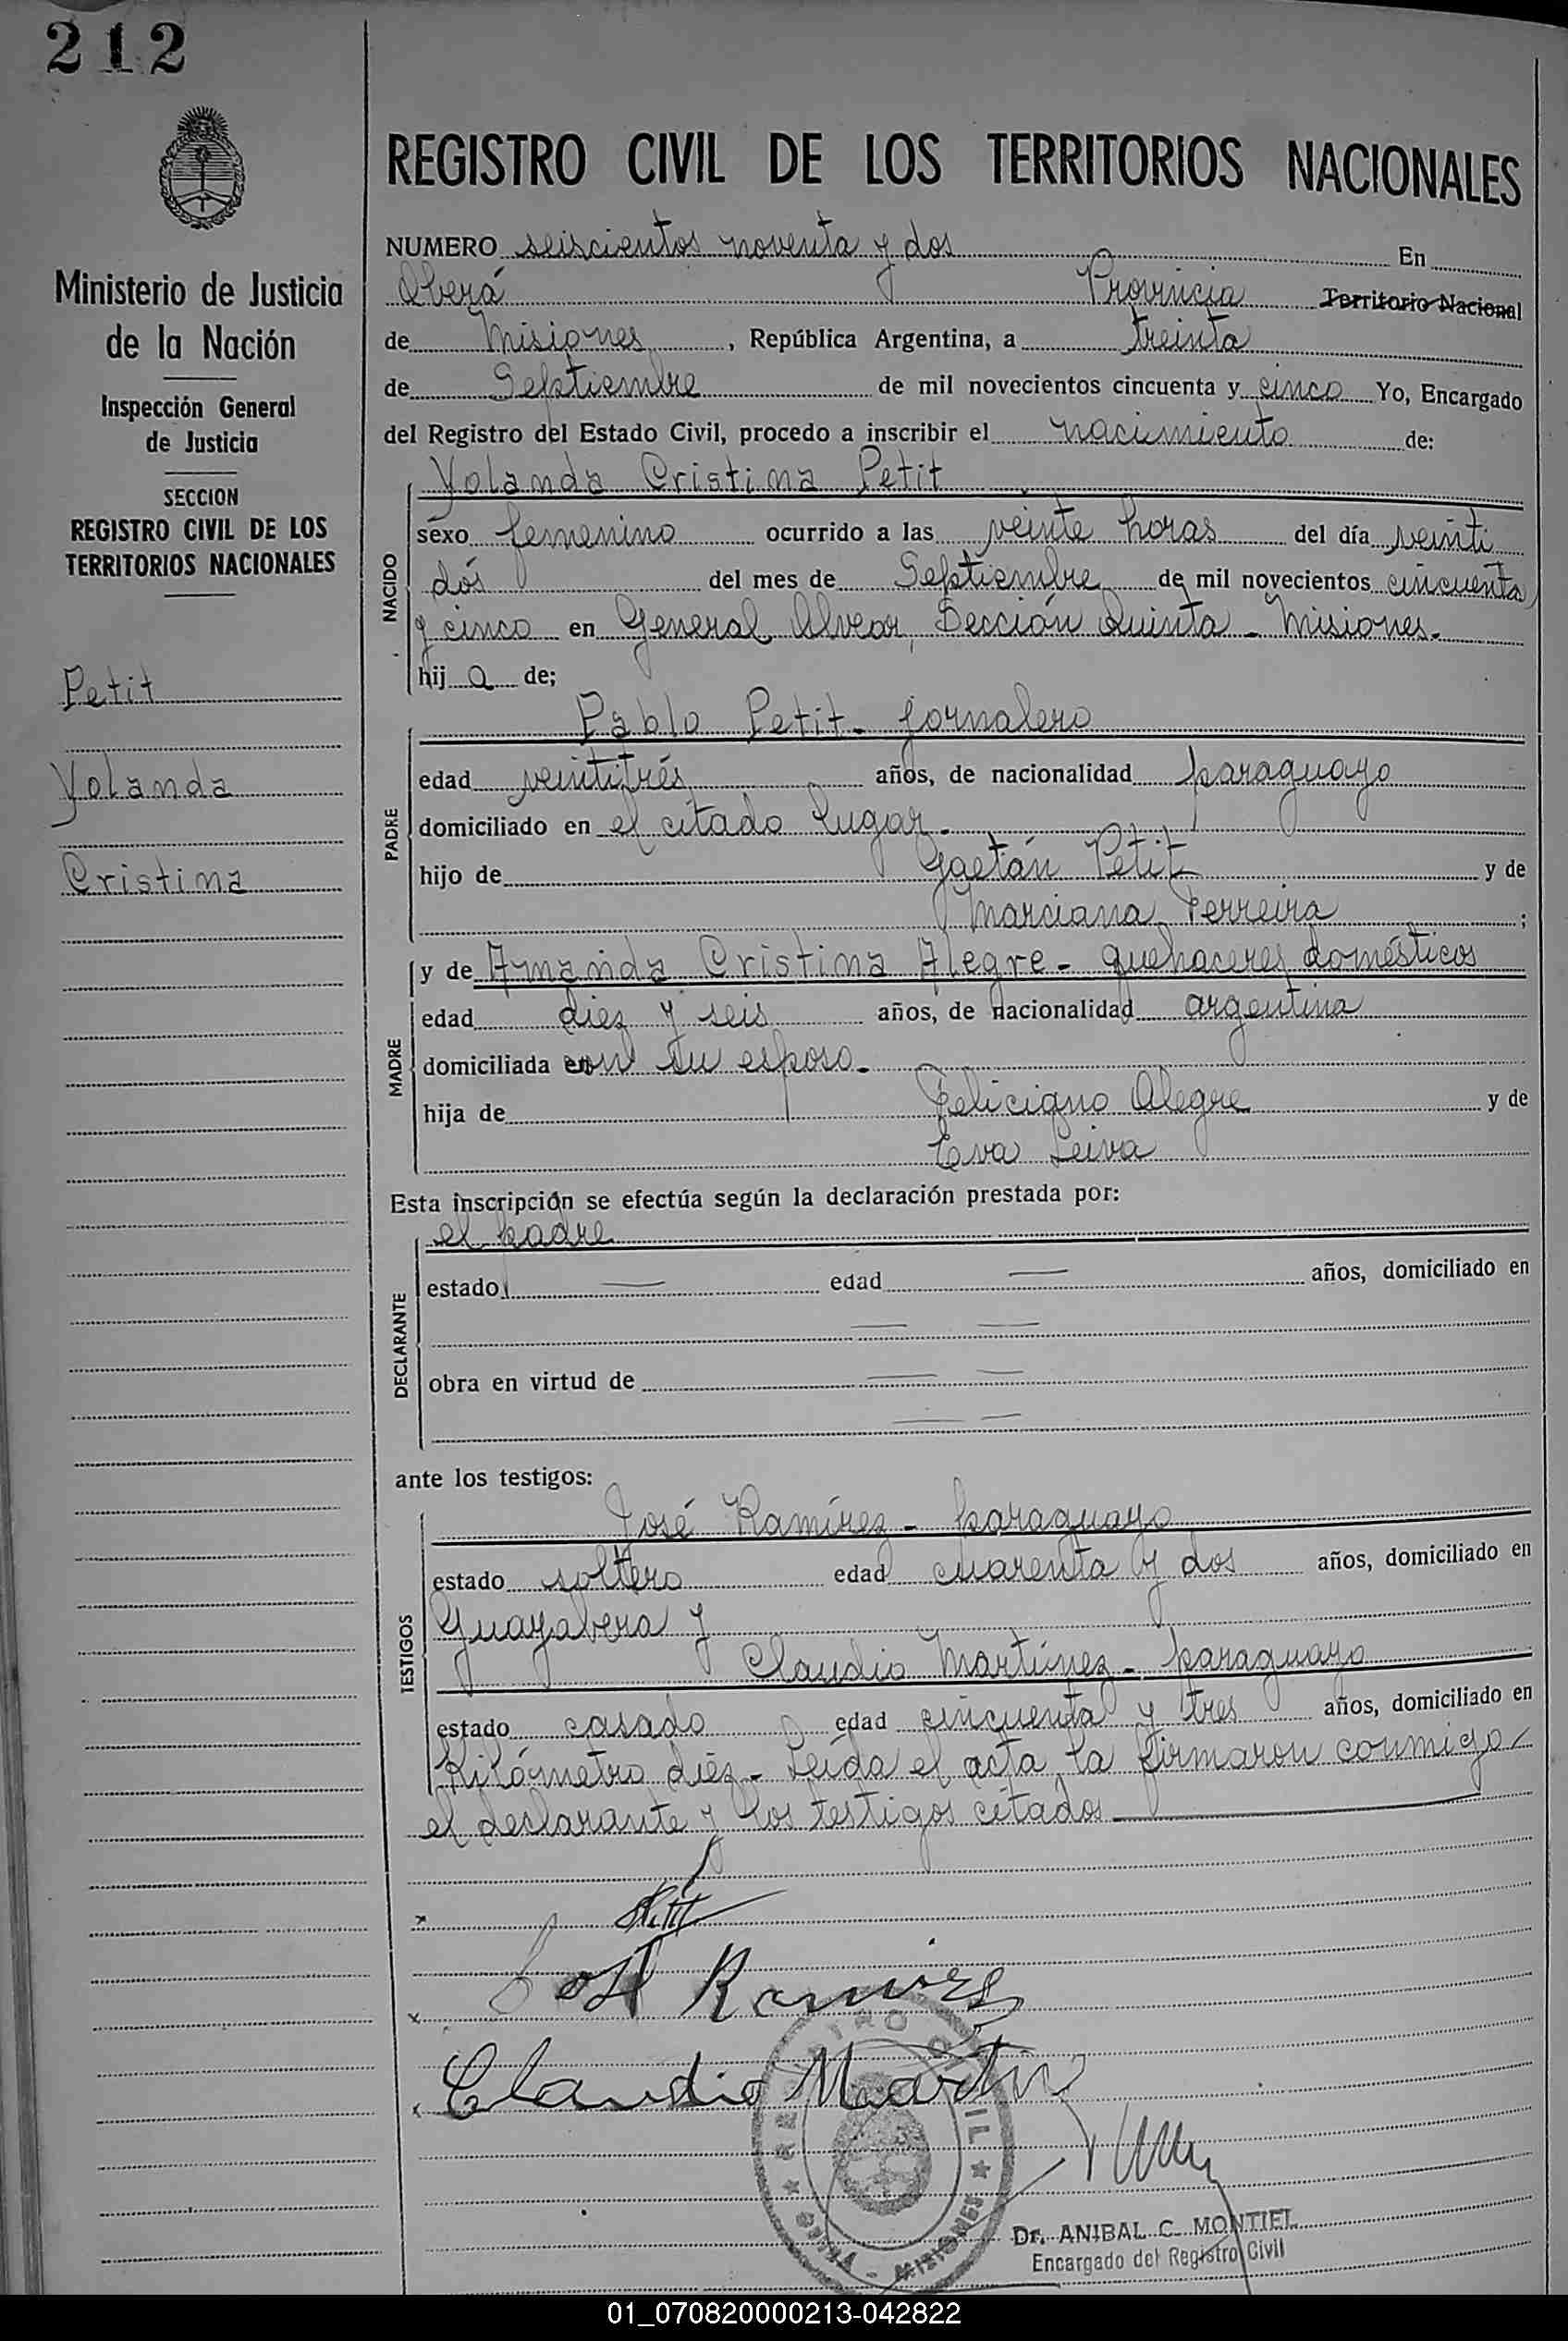 212
REGISTRO CIVIL DE LOS TERRITORIOS NACIONALES
Ministerio de Justicia
de la Nación
Inspección General
de Justicia
SECCION
REGISTRO CIVIL DE LOS
TERRITORIOS NACIONALES
Petit
Yolanda
Cristina
NUMERO seiscientos noventa y dos En
Oberá Provincia Territorio Nacional
de Misiones, República Argentina, a treinta
de Septiembre de mil novecientos cincuenta y cinco Yo, Encargado
del Registro del Estado Civil, procedo a inscribir el nacimiento de:
NACIDO
Yolanda Cristina Petit
sexo femenino ocurrido a las veinte horas del día veinti
dós del mes de Septiembre de mil novecientos cincuenta
y cinco en General Alvear, Sección Quinta - Misiones.
hij a de;
PADRE
Pablo Petit - jornalero
edad veintitrés años, de nacionalidad paraguayo
domiciliado en el citado lugar.
hijo de Gaetán Petit y de
Marciana Ferreira ;
MADRE
y de Amanda Cristina Alegre - quehaceres domésticos
edad diez y seis años, de nacionalidad argentina
domiciliada con su esposo.
hija de Feliciano Alegre y de
Eva Leiva
Esta inscripción se efectúa según la declaración prestada por:
DECLARANTE
el padre
estado — edad — años, domiciliado en
— —
obra en virtud de — —
— —
ante los testigos:
TESTIGOS
José Ramírez - paraguayo
estado soltero edad cuarenta y dos años, domiciliado en
Guayabera y
Claudio Martínez - paraguayo
estado casado edad cincuenta y tres años, domiciliado en
Kilómetro diez - Leída el acta, la firmaron conmigo
el declarante y los testigos citados
x Petit
x José Ramirez
x Claudio Martin
REGISTRO CIVIL
MISIONES
Dr. ANIBAL C. MONTIEL
Encargado del Registro Civil
01_070820000213-042822